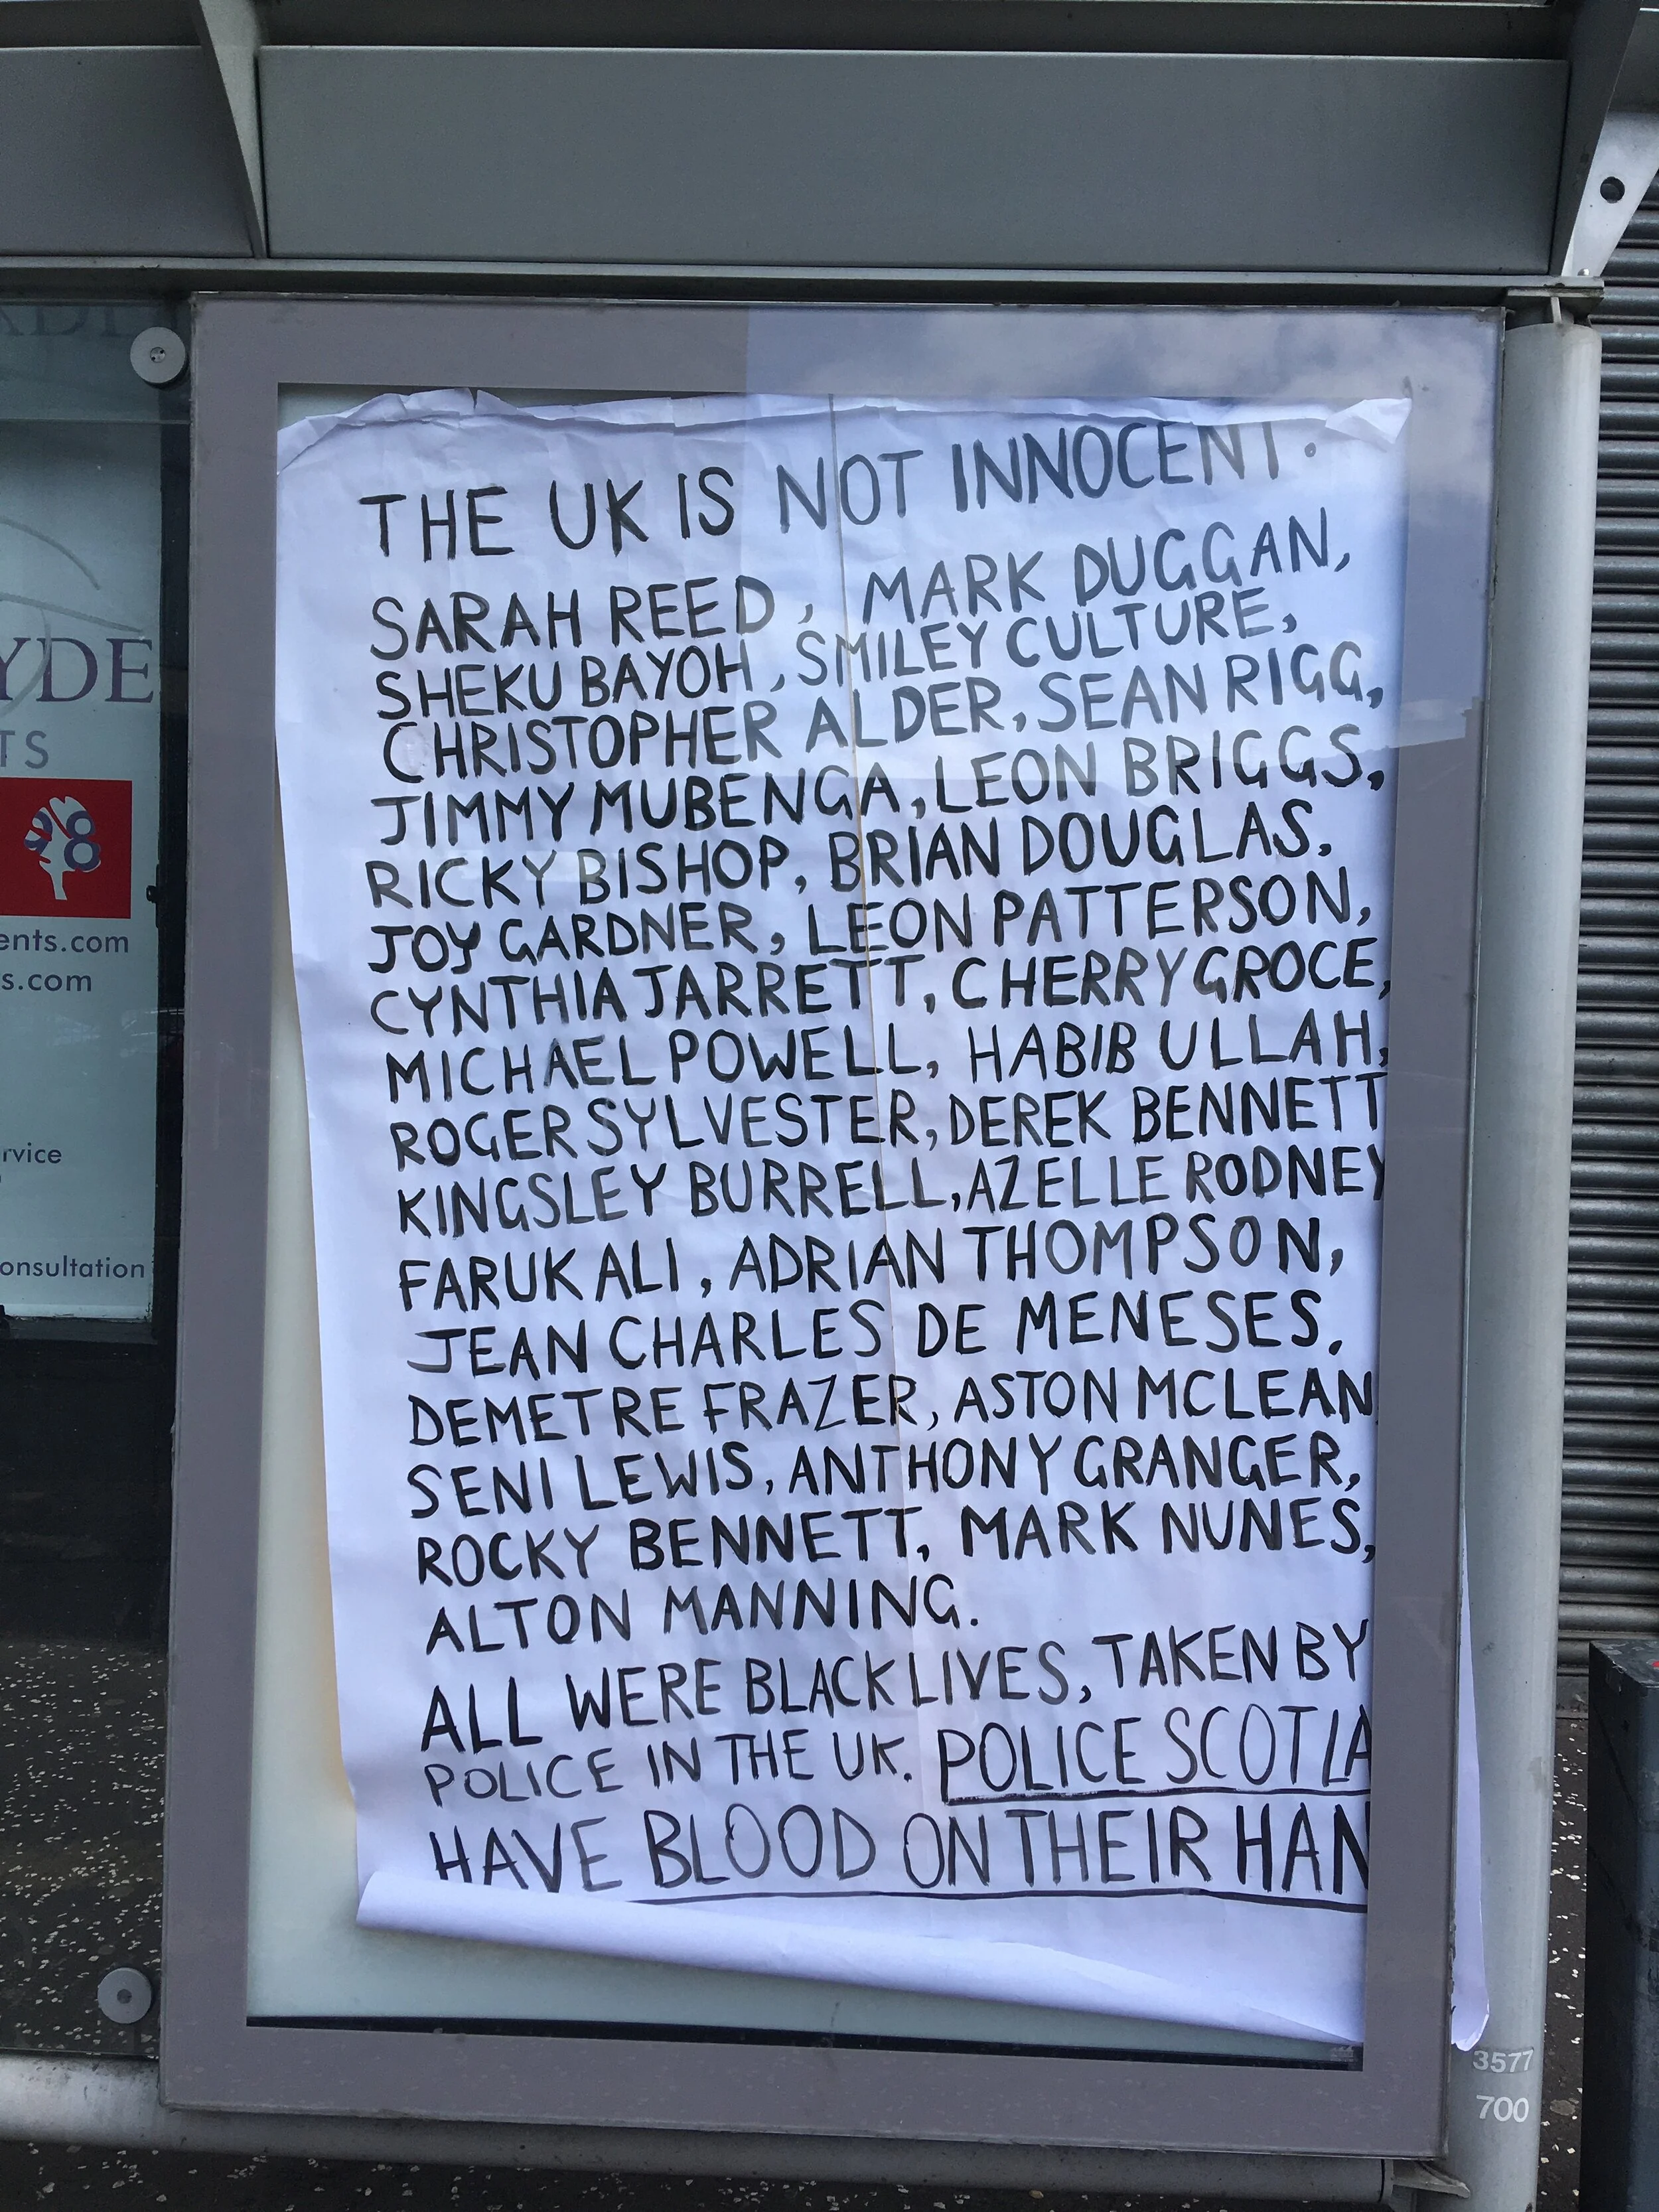 THE UK IS NOT INNOCENT.
SARAH REED, MARK DUGGAN,
SHEKU BAYOH, SMILEY CULTURE,
CHRISTOPHER ALDER, SEAN RIGG,
JIMMY MUBENGA, LEON BRIGGS,
RICKY BISHOP, BRIAN DOUGLAS,
JOY GARDNER, LEON PATTERSON,
CYNTHIA JARRETT, CHERRY GROCE,
MICHAEL POWELL, HABIB ULLAH,
ROGER SYLVESTER, DEREK BENNETT
KINGSLEY BURRELL, AZELLE RODNEY
FARUK ALI, ADRIAN THOMPSON,
JEAN CHARLES DE MENESES,
DEMETRE FRAZER, ASTON MCLEAN
SENI LEWIS, ANTHONY GRANGER,
ROCKY BENNETT, MARK NUNES,
ALTON MANNING.
ALL WERE BLACK LIVES, TAKEN BY
POLICE IN THE UK. POLICE SCOTLA
HAVE BLOOD ON THEIR HAN
YDE
TS
ents.com
s.com
rvice
onsultation
3577
700